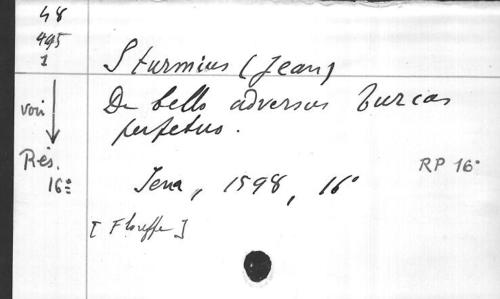 48
495
1
Sturmius (Jean)
De bello adversus Turcas
perpetuo.
voir
Rés.
16º
RP 16º
Jena, 1598, 16º
[Floreffe]